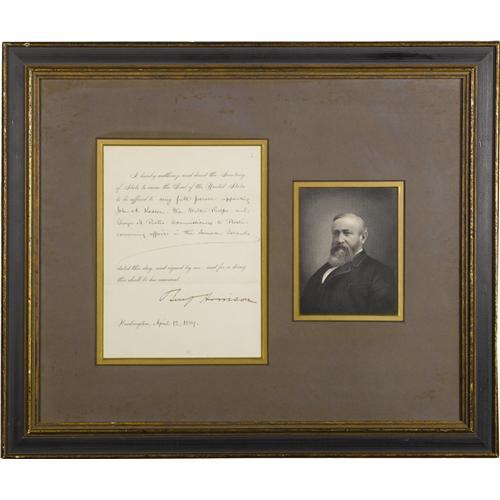 I hereby authorize and direct the Secretary
of State to cause the Seal of the United States
to be affixed to my full power appointing
John A. Kasson, Wm. Walter Phelps and
George H. Bates Commissioners to Berlin
concerning affairs in the Samoan Islands
dated this day, and signed by me and for so doing
this shall be his warrant.
Benj Harrison
Washington, April 12, 1889.